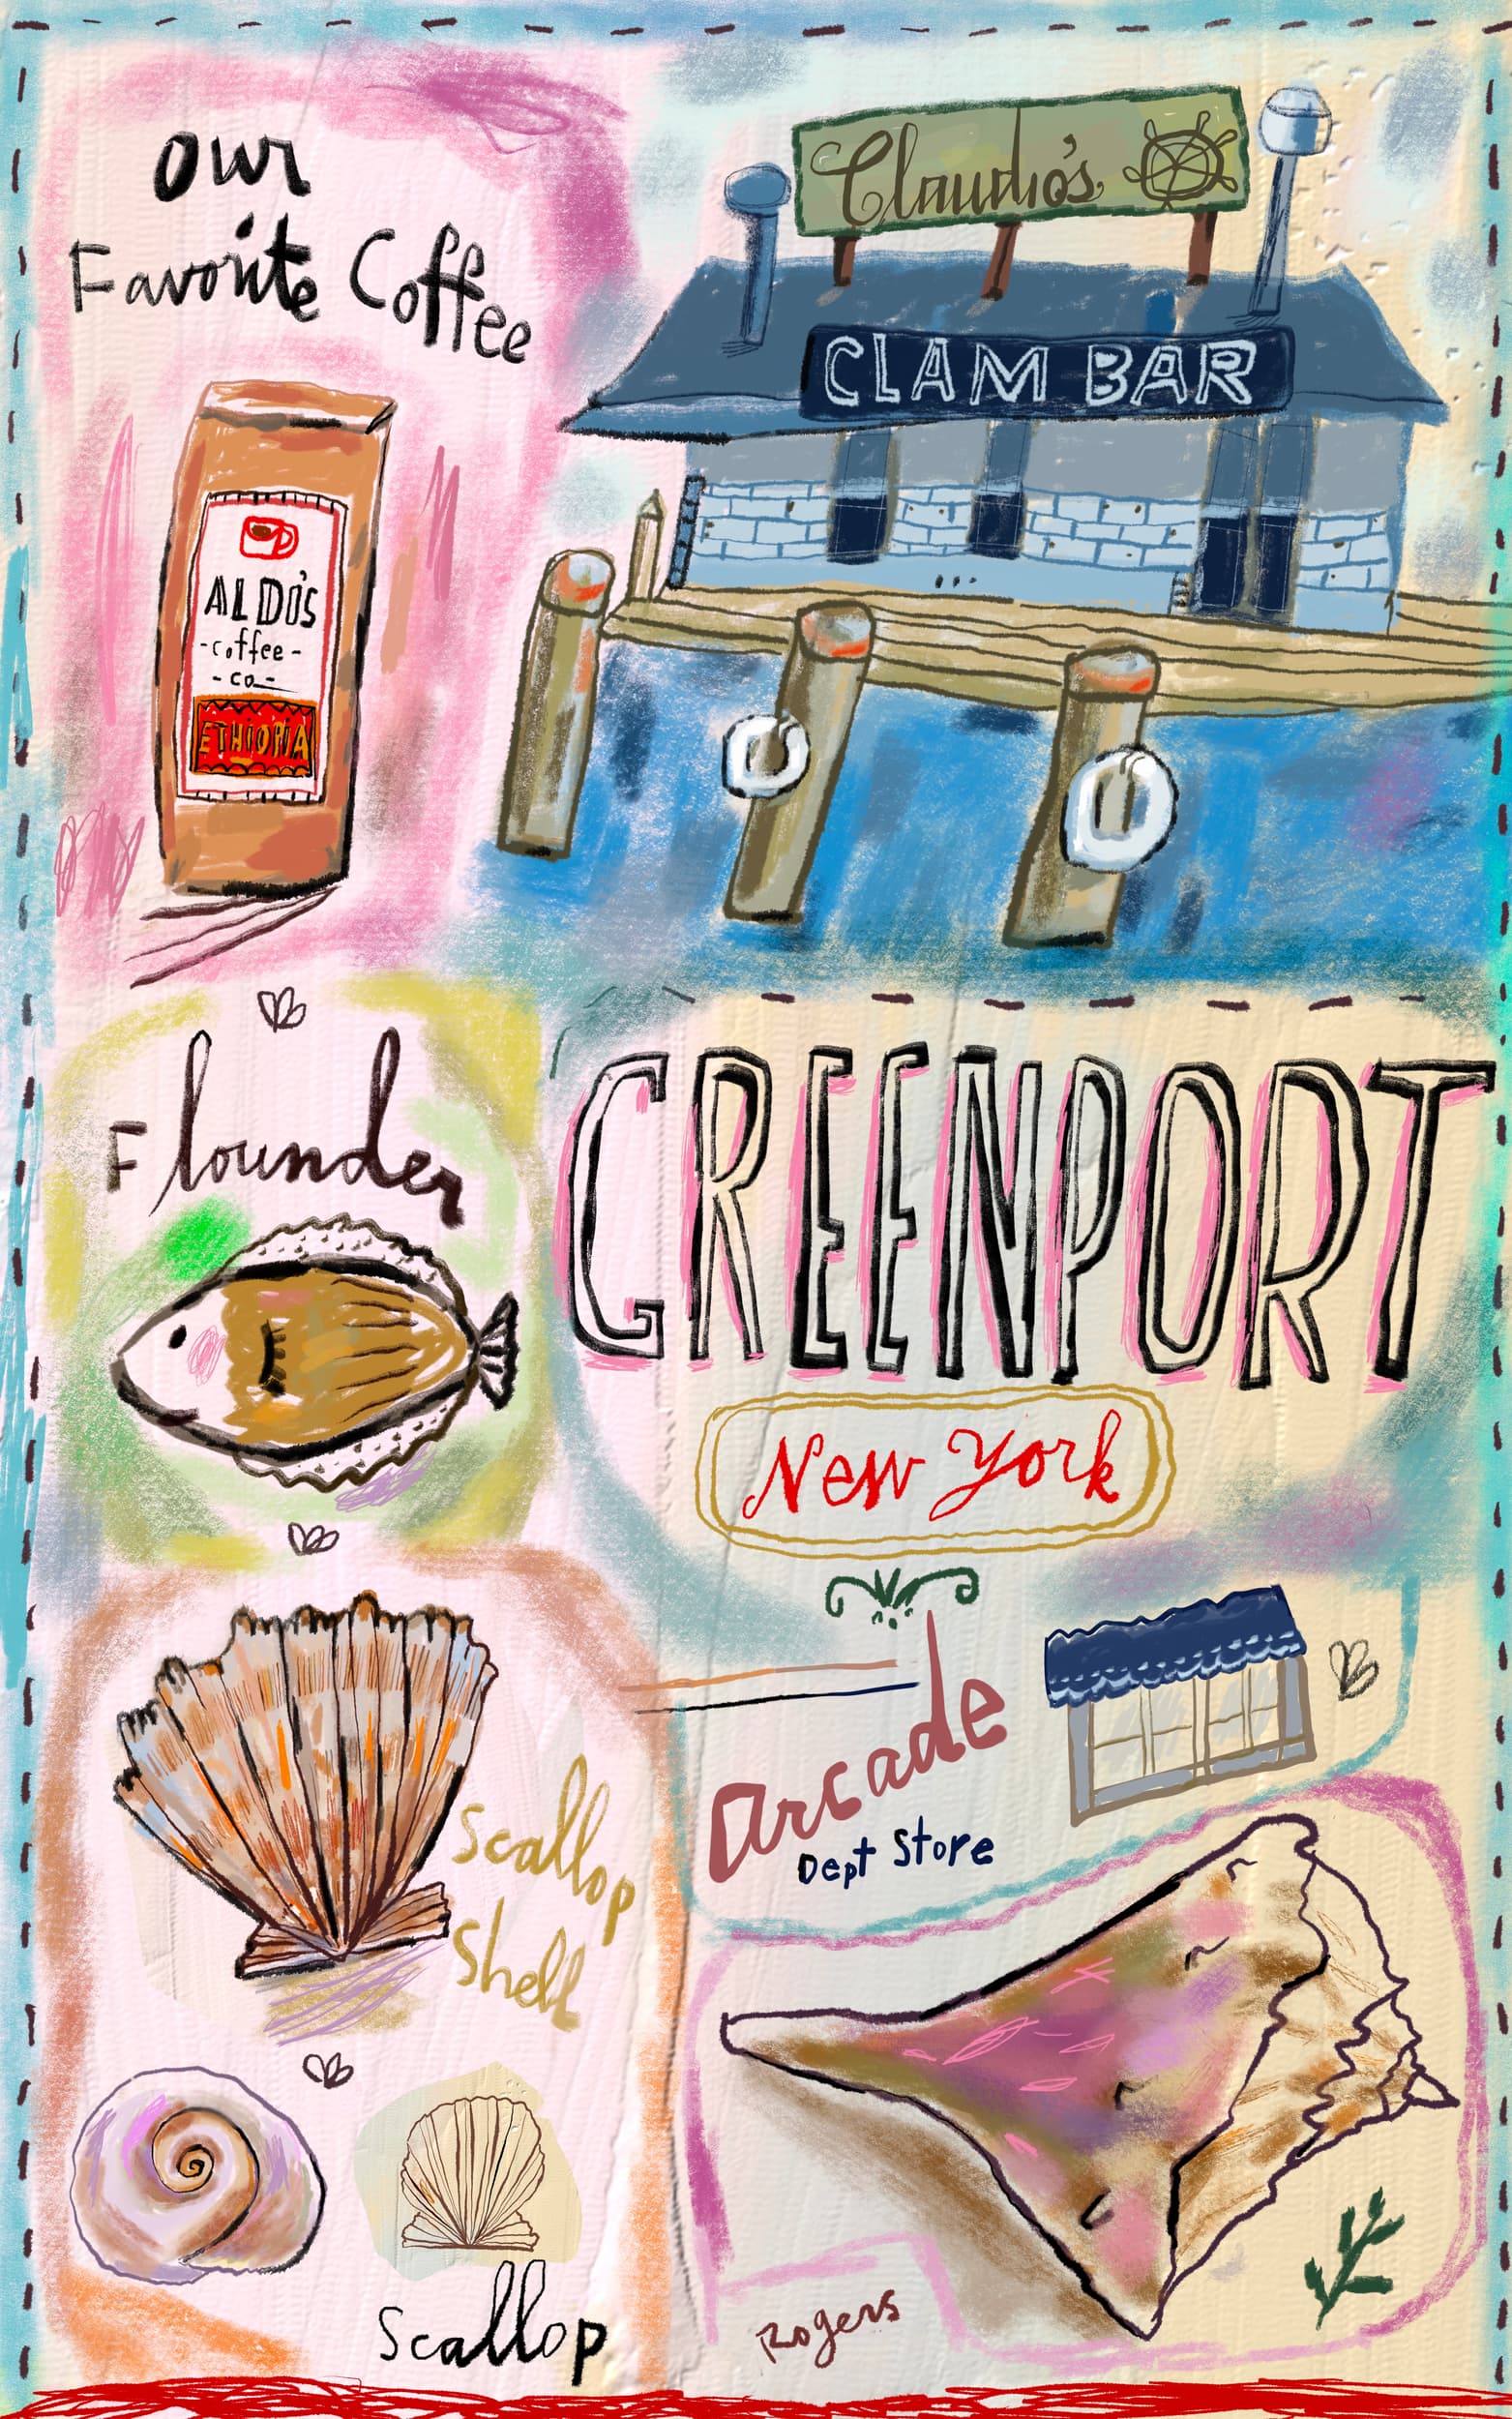 our
Favorite Coffee
ALDO'S
-coffee-
-co-
ETHIOPIA
Claudio's
CLAM BAR
Flounder
GREENPORT
New York
arcade
Dept Store
Scallop
Shell
Scallop
Rogers